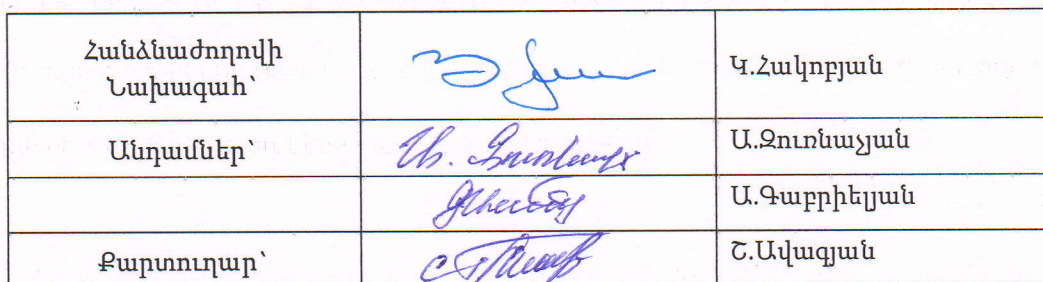 Հանձնաժողովի Կ.Հակոբյան
Նախագահ՝
Անդամներ՝ Ա.Զուռնաչյան
Ա.Գաբրիելյան
Քարտուղար՝ Շ.Ավագյան